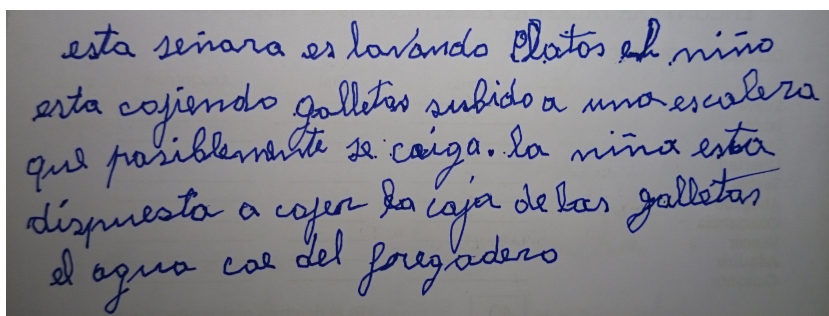 esta señora es lavando Platos el niño
esta cojiendo galletas subido a una escalera
que posiblemente se caiga. la niña esta
dispuesta a cojer la caja de las galletas
el agua cae del fregadero